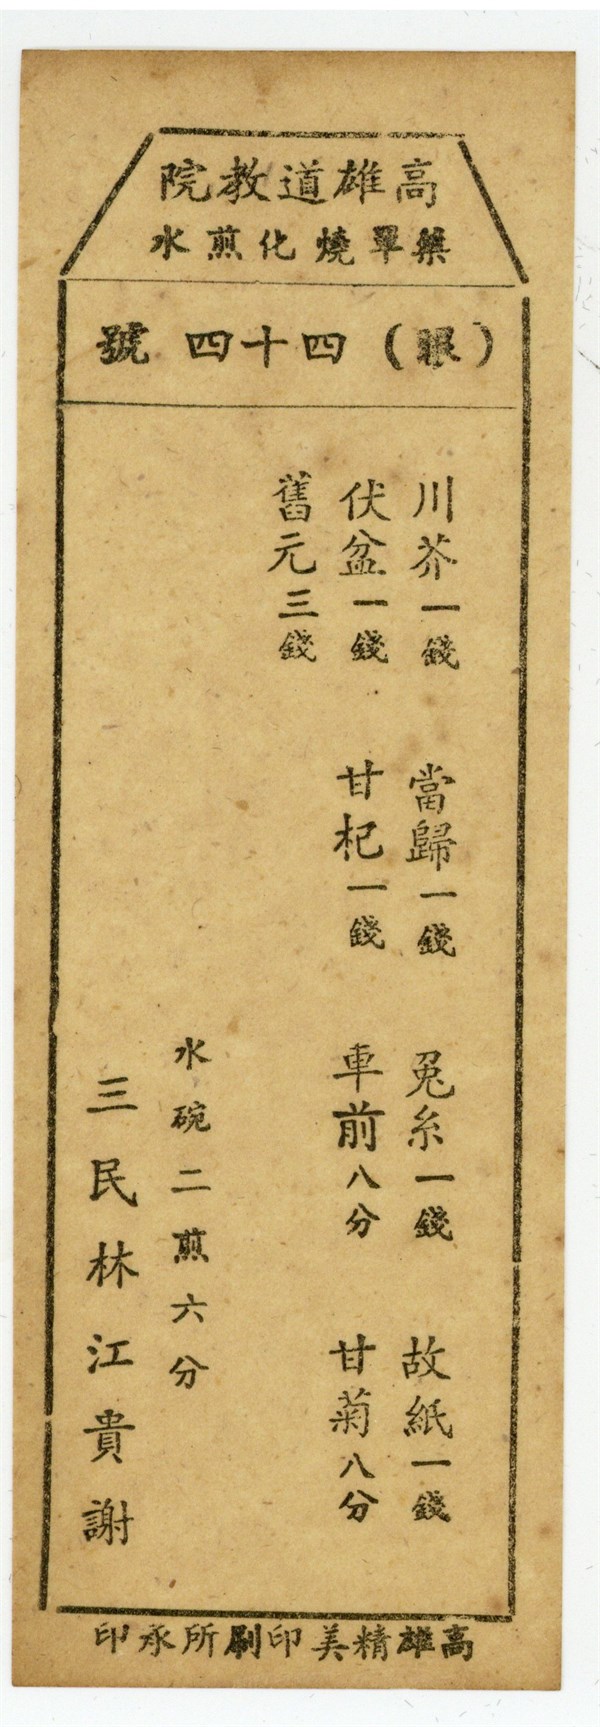 高雄道教院
藥單燒化煎水
(眼) 四十四號
川芥一錢 當歸一錢 兔糸一錢 故紙一錢
伏盆一錢 甘杞一錢 車前八分 甘菊八分
舊元三錢
水碗二煎六分
三民林江貴謝
高雄精美印刷所承印